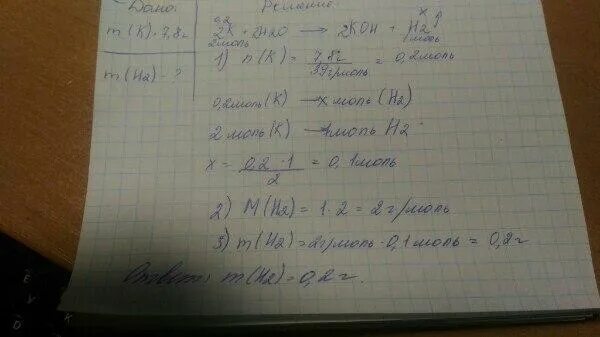 Дано:
m(K)=7,8г
m(H2)-?
Решение:
0,2 x
2K + 2H2O → 2KOH + H2↑
2моль 1моль
1) n(K) = 7,8г / 39г/моль = 0,2моль
0,2моль(K) → x моль (H2)
2 моль(K) → 1моль H2
x = 0,2 · 1 / 2 = 0,1моль
2) M(H2) = 1·2 = 2г/моль
3) m(H2) = 2г/моль · 0,1моль = 0,2г
Ответ: m(H2) = 0,2г.